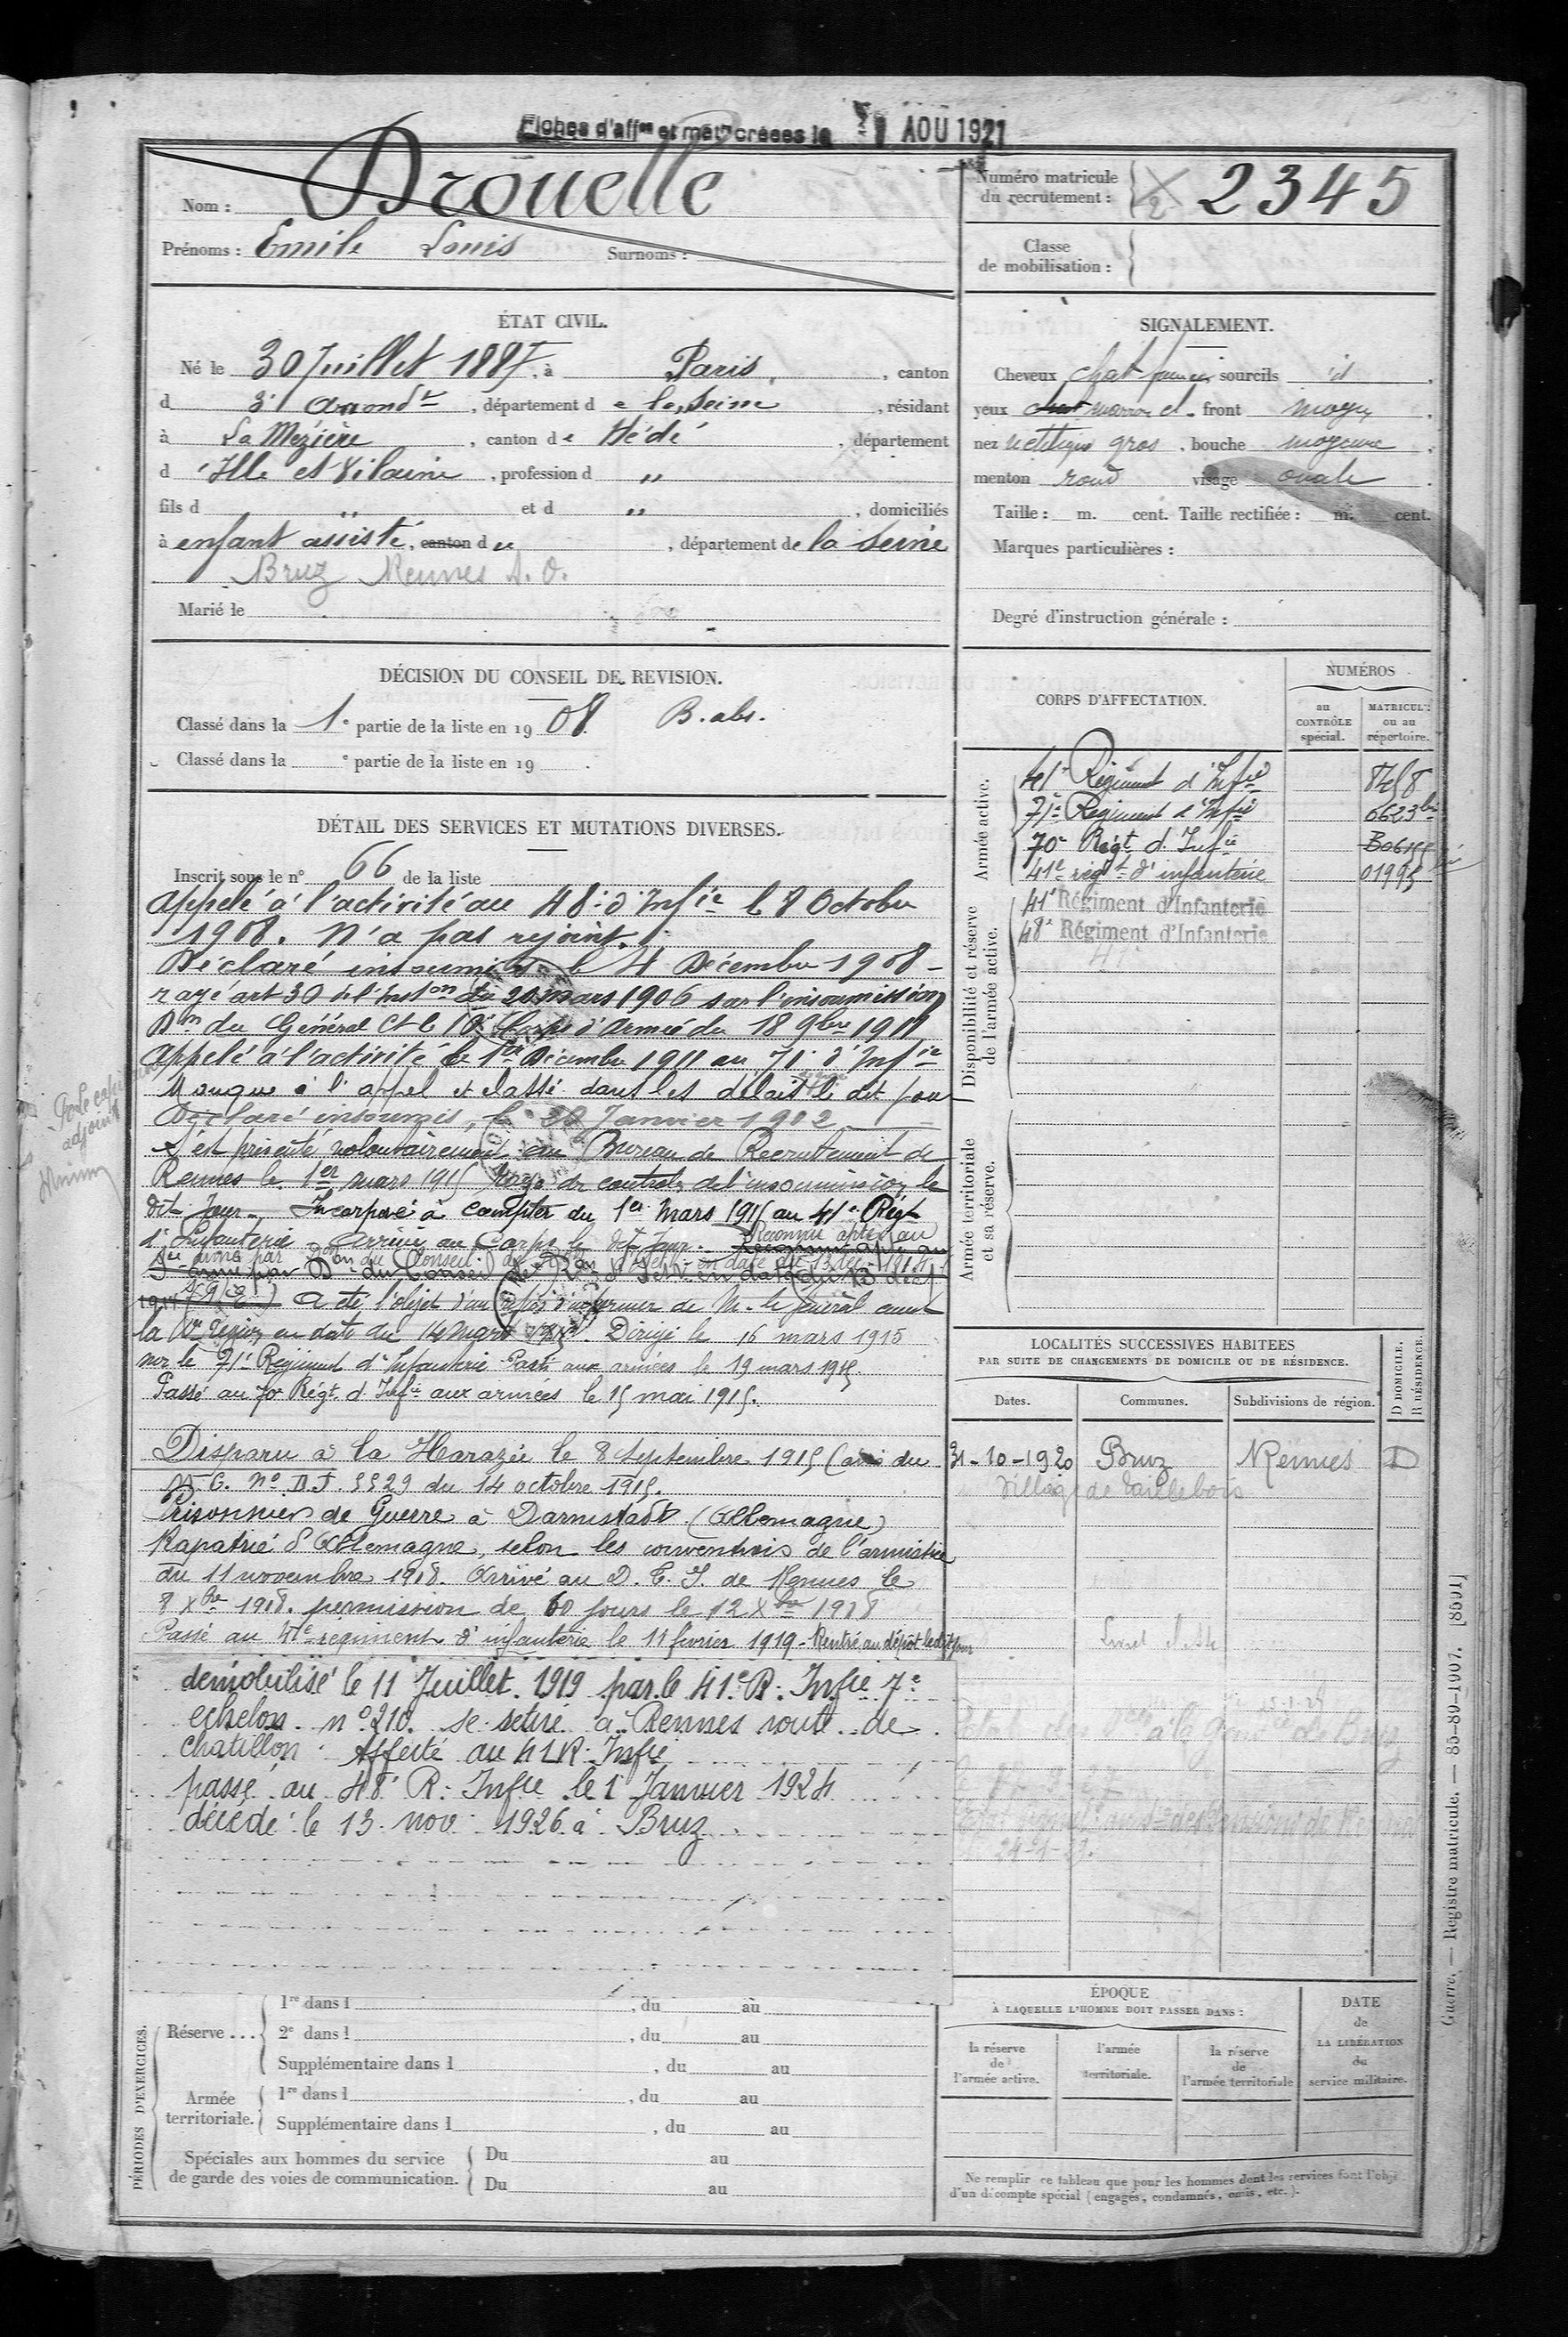 Fiches d'aff^on et mat^le créées le AOU 1921
Nom : Drouelle
Prénoms : Emile Louis Surnoms :
Numéro matricule du recrutement : 2345
Classe de mobilisation :
ÉTAT CIVIL.
Né le 30 Juillet 1887, à Paris, canton
d 3e Arrondt, département de la Seine, résidant
à La Mézière, canton de Hédé, département
d'Ille et Vilaine, profession d "
fils d " et d ", domiciliés
à enfant assisté, canton d, département de la Seine
Bruz Rennes
Marié le
SIGNALEMENT.
Cheveux chat sourcils id
yeux marron cl. front moyen
nez rectiligne gros, bouche moyenne
menton rond visage ovale
Taille : m. cent. Taille rectifiée : m. cent.
Marques particulières :
Degré d'instruction générale :
DÉCISION DU CONSEIL DE REVISION.
Classé dans la 1e partie de la liste en 1908. B. abs.
Classé dans la e partie de la liste en 19 .
CORPS D'AFFECTATION.
NUMÉROS
au CONTRÔLE spécial.
MATRICULE ou au répertoire.
Armée active.
41e Régiment d'Infie
71e Régiment d'Infie 6623 bis
70e Régt d'Infie
41e régt d'infanterie 01995
Disponibilité et réserve de l'armée active.
41e Régiment d'Infanterie
48e Régiment d'Infanterie
Armée territoriale et sa réserve.
DÉTAIL DES SERVICES ET MUTATIONS DIVERSES.
Inscrit sous le n° 66 de la liste
Appelé à l'activité au 48e d'Infie le 8 Octobre
1908. N'a pas rejoint.
Déclaré insoumis le 4 Décembre 1908 -
rayé art 30 de l'Inston du 20 mars 1906 sur l'insoumission
Don du Général Ct le 10e Corps d'Armée du 18 9bre 1911
Appelé à l'activité le 1er Décembre 1911 au 71e d'Infie
Manque à l'appel et classé dans les délais le dit jour
Déclaré insoumis, le 20 Janvier 1912
S'est présenté volontairement au Bureau de Recrutement de
Rennes le 1er mars 1915 Rayé des contrôles de l'insoumission le
dit Jour. Incorporé à compter du 1er Mars 1915 au 41e Régt
d'Infanterie Arrivé au Corps le dit Jour. Reconnu apte au
Sce armé par Don du Conseil de Ron en date du 13 déc 1914
A été l'objet d'un refus d'informer de M. le Général comt
la Xe Région en date du 14 mars 1915. Dirigé le 16 mars 1915
sur le 71e Régiment d'Infanterie Parti aux armées le 19 mars 1915.
Passé au 70e Régt d'Infie aux armées le 15 mai 1915.
Disparu à la Harazée le 8 Septembre 1915 (avis du
du 14 octobre 1915.
Prisonnier de Guerre à Darmstadt (Allemagne)
Rapatrié d'Allemagne, selon les conventions de l'armistice
du 11 novembre 1918. Arrivé au D. C. I. de Rennes le
8 Xbre 1918. permission de 60 jours le 12 Xbre 1918
Passé au 41e régiment d'infanterie le 11 février 1919 - Rentré au dépôt le dit jour
démobilisé le 11 Juillet 1919 par le 41e R. Infie 7e
echelon n° 210. se retire a Rennes route de
chatillon Affecté au 41 R. Infie
passé au 48e R. Infie le 1 Janvier 1924
décédé le 13 nov 1926 à Bruz
LOCALITÉS SUCCESSIVES HABITÉES
PAR SUITE DE CHANGEMENTS DE DOMICILE OU DE RÉSIDENCE.
Dates. Communes. Subdivisions de région. D DOMICILE. R RÉSIDENCE.
31-10-1920 Bruz Rennes D
Village de Taillebois
à la Genrie de Bruz
PÉRIODES D'EXERCICES.
Réserve ... 1re dans l , du au
2e dans l , du au
Supplémentaire dans l , du au
Armée territoriale. 1re dans l , du au
Supplémentaire dans l , du au
Spéciales aux hommes du service de garde des voies de communication. Du au
Du au
ÉPOQUE
À LAQUELLE L'HOMME DOIT PASSER DANS :
la réserve de l'armée active.
l'armée territoriale.
la réserve de l'armée territoriale
DATE de LA LIBÉRATION du service militaire.
Ne remplir ce tableau que pour les hommes dont les services font l'objet
d'un décompte spécial (engagés, condamnés, omis, etc.).
Guerre. — Registre matricule. — 85-89-1907. [8591]